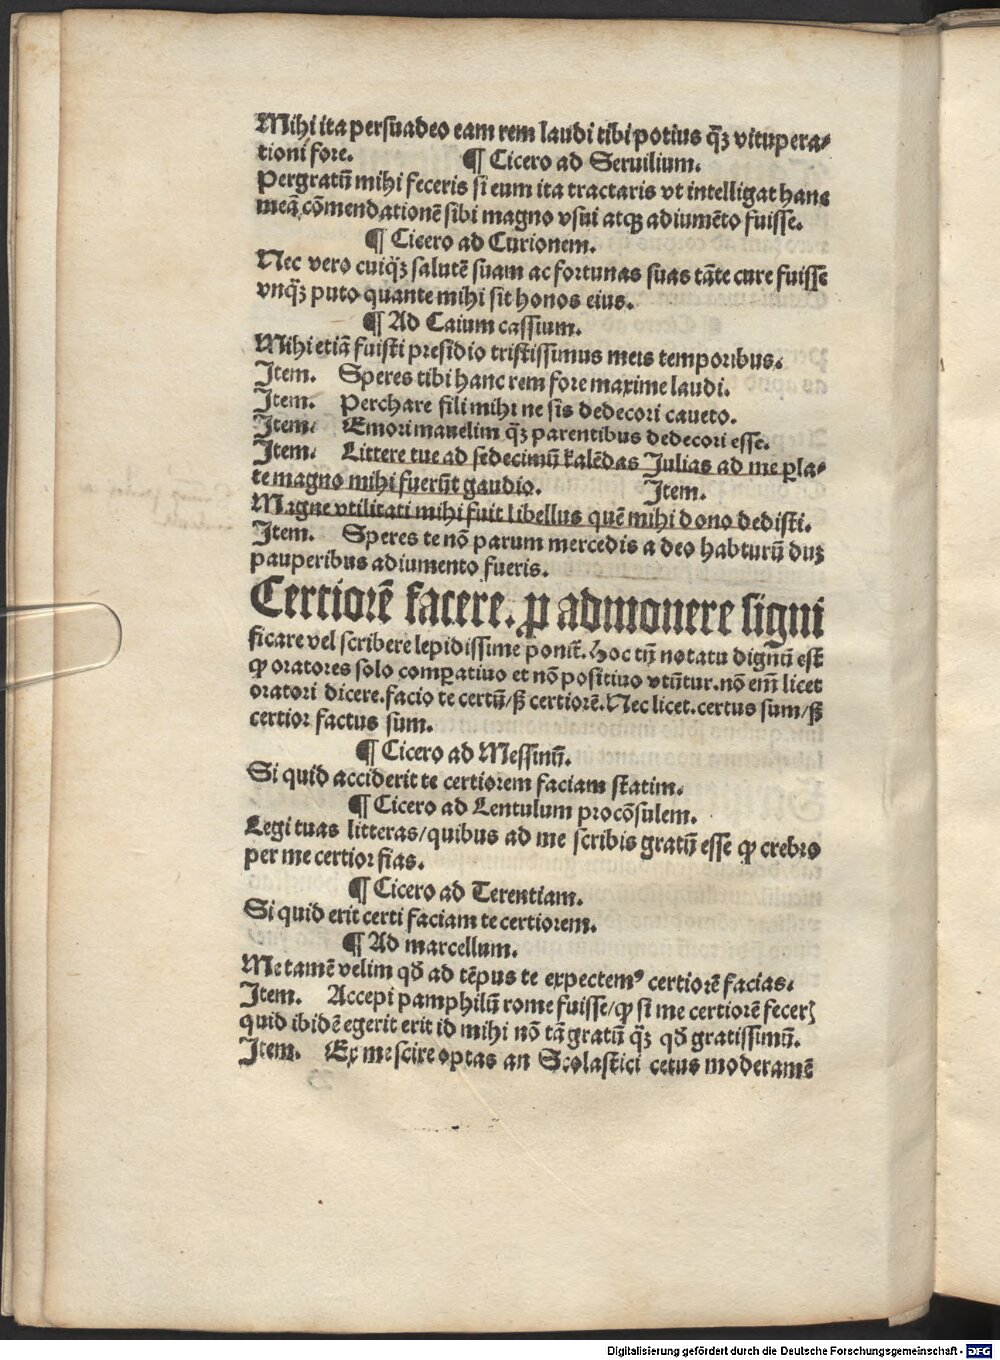 Mihi ita persuadeo eam rem laudi tibi potius q̃ȝ vitupera⸗
tioni fore. ¶ Cicero ad Seruilium.
Pergratũ mihi feceris si eum ita tractaris vt intelligat hanc
meã cõmendationẽ sibi magno vsui atqȝ adiumẽto fuisse.
¶ Cicero ad Curionem.
Nec vero cuiq̃ȝ salutẽ suam ac fortunas suas tãte cure fuisse
vnq̃ȝ puto quante mihi sit honos eius.
¶ Ad Caium cassium.
Mihi etiã fuisti presidio tristissimus meis temporibus.
Item. Speres tibi hanc rem fore maxime laudi.
Item. Perchare fili mihi ne sis dedecori caueto.
Item. Emori mauelim q̃ȝ parentibus dedecori esse.
Item. Littere tue ad sedecimũ kalẽdas Julias ad me ꝑla⸗
te magno mihi fuerũt gaudio. Item.
Magne vtilitati mihi fuit libellus quẽ mihi dono dedisti.
Item. Speres te nõ parum mercedis a deo habturũ duȝ
pauperibus adiumento fueris.
Certiorẽ facere. ꝓ admonere signi
ficare vel scribere lepidissime ponit̃. Hoc tñ notatu dignũ est
ꝙ oratores solo comꝑatiuo et nõ positiuo vtũtur. nõ em̃ licet
oratori dicere. facio te certũ/ sꝫ certiorẽ. Nec licet. certus sum/ sꝫ
certior factus sum.
¶ Cicero ad Messinũ.
Si quid acciderit te certiorem faciam statim.
¶ Cicero ad Lentulum procõsulem.
Legi tuas litteras/ quibus ad me scribis gratũ esse ꝙ crebro
per me certior fias.
¶ Cicero ad Terentiam.
Si quid erit certi faciam te certiorem.
¶ Ad marcellum.
Me tamẽ velim qð ad tẽpus te expectemꝰ certiorẽ facias.
Item. Accepi pamphilũ rome fuisse/ ꝙ si me certiorẽ fecerꝭ
quid ibidẽ egerit erit id mihi nõ tã gratũ q̃ȝ qð gratissimũ.
Item. Ex me scire optas an Scolastici cetus moderamẽ
Digitalisierung gefördert durch die Deutsche Forschungsgemeinschaft - DFG